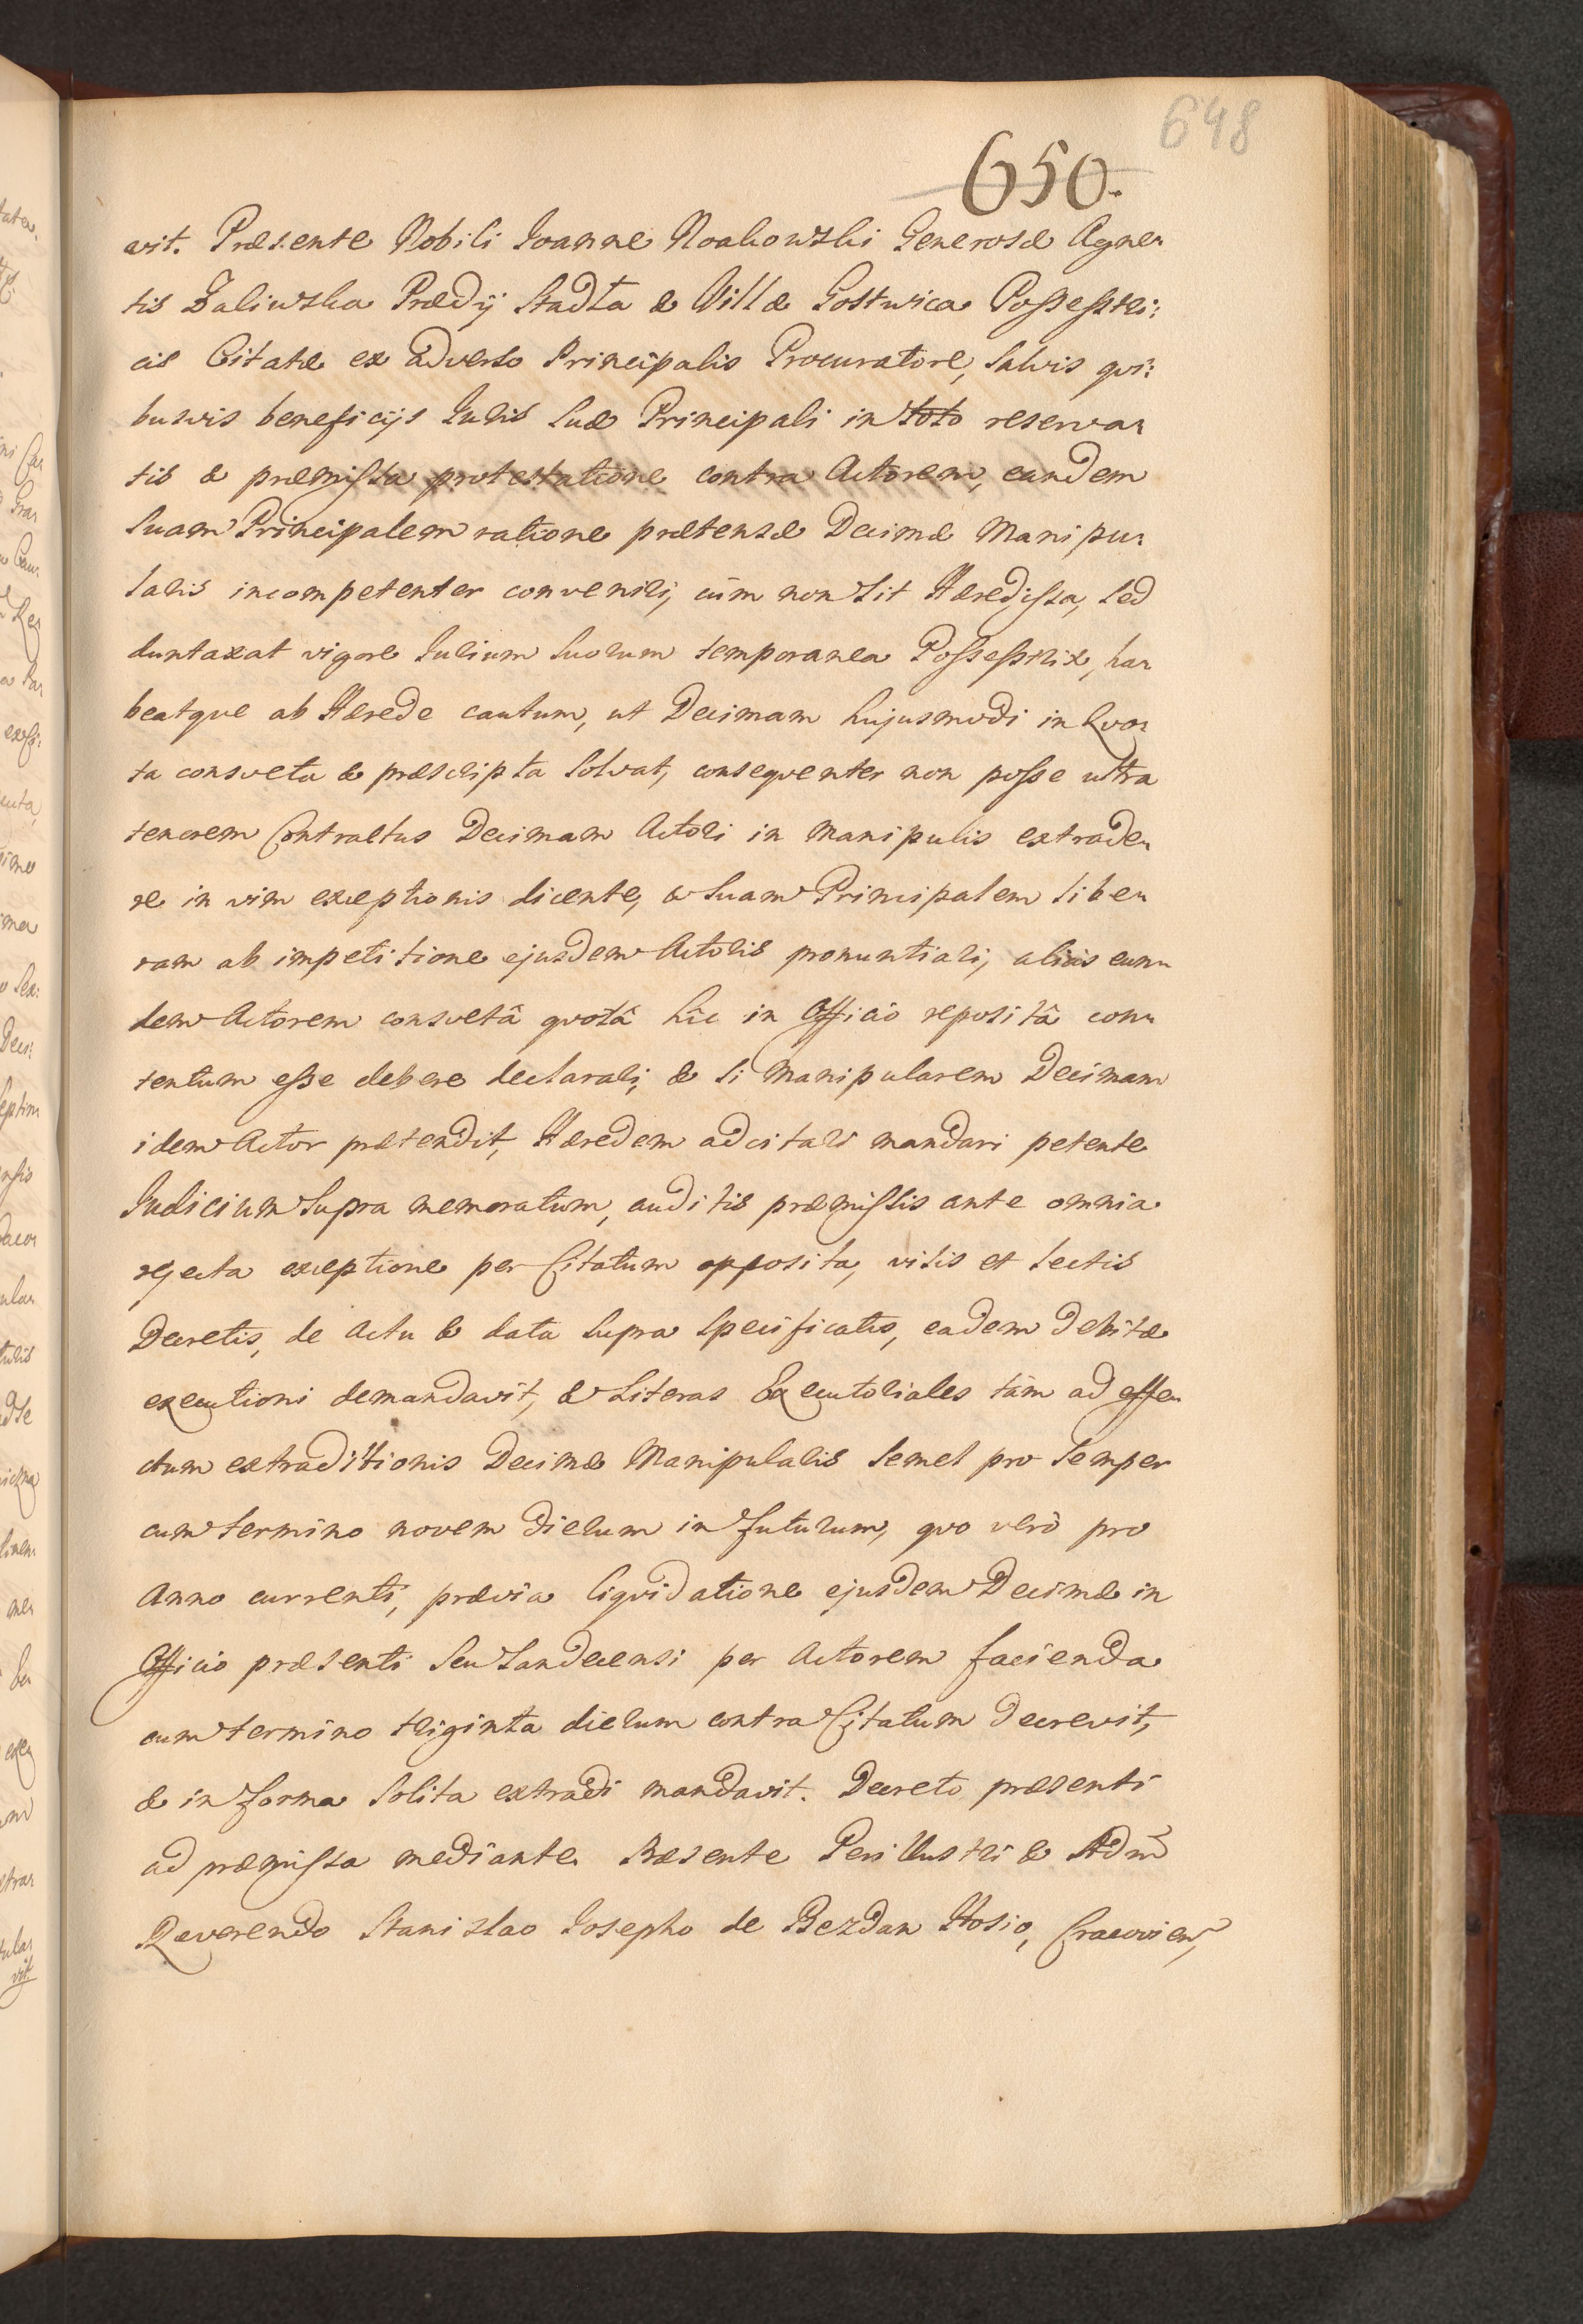 648
650.
avit. Præsente Nobili Joanne Noakowski Generosæ Agne-
tis Zaliwska Prædij Stadła & Villæ Gostwica Possestri:
cis Citatæ ex adverso Principalis Procuratore, salvis qvi:
busvis beneficijs Juris suæ Principali in toto reserva-
tis & præmissa protestatione contra Actorem, eandem
suam Principalem ratione prætensæ Decimæ Manipu-
laris incompetenter conveniri, cùm non sit Hæredissa, sed
duntaxat vigore Jurium suorum temporanea Possestrix, ha-
beatqve ab Hærede cautum, ut Decimam hujusmodi in Qvo-
ta consveta & præscripta solvat, conseqventer non posse ultra
tenorem Contractus Decimam Actori in Manipulis extrade-
re in vim exceptionis dicente, & suam Principalem libe-
ram ab impetitione ejusdem Actoris pronuntiari, aliàs eun-
dem Actorem consvetâ qvotâ hîc in Officio repositâ con-
tentum esse debere declarari, & si Manipularem Decimam
idem Actor prætendit, Hæredem adcitari mandari petente
Judicium supra memoratum, auditis præmissis ante omnia
rejecta exceptione per Citatum opposita, visis et lectis
Decretis, de Actu & data supra specificatis, eadem debitæ
executioni demandavit, & Literas Executoriales tàm ad effe-
ctum extraditionis Decimæ Manipularis semel pro semper
cum termino novem dierum in futurum, qvo verò pro
Anno currenti, prævia liqvidatione ejusdem Decimæ in
Officio præsenti seu Sandecensi per Actorem facienda
cum termino triginta dierum contra Citatum decrevit,
& in forma solita extradi mandavit. Decreto præsenti
ad præmissa mediante. Præsente Perillustri & Adm̃
Reverendo Stanislao Josepho de Bezdan Hosio, Cracovien,